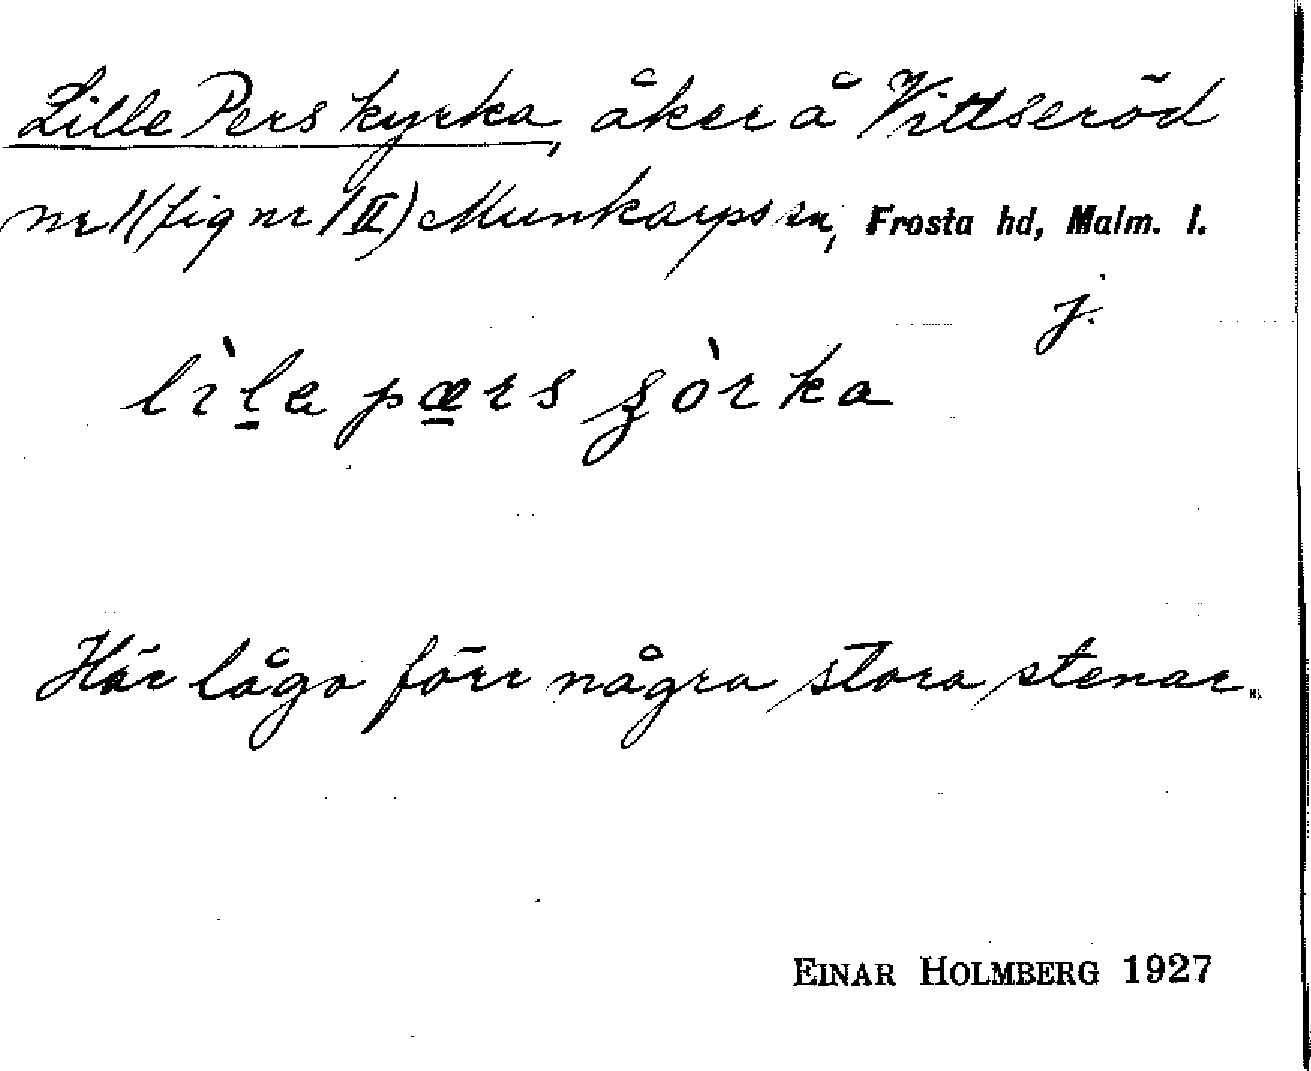 Lille Pers kyrka, åker å Vittseröd
nr 1 (fig nr 1 II) Munkarps sn, Frosta hd, Malm. l.
j.
lìla pærs ʂòrka
Här lågo förr några stora stenar.
EINAR HOLMBERG 1927